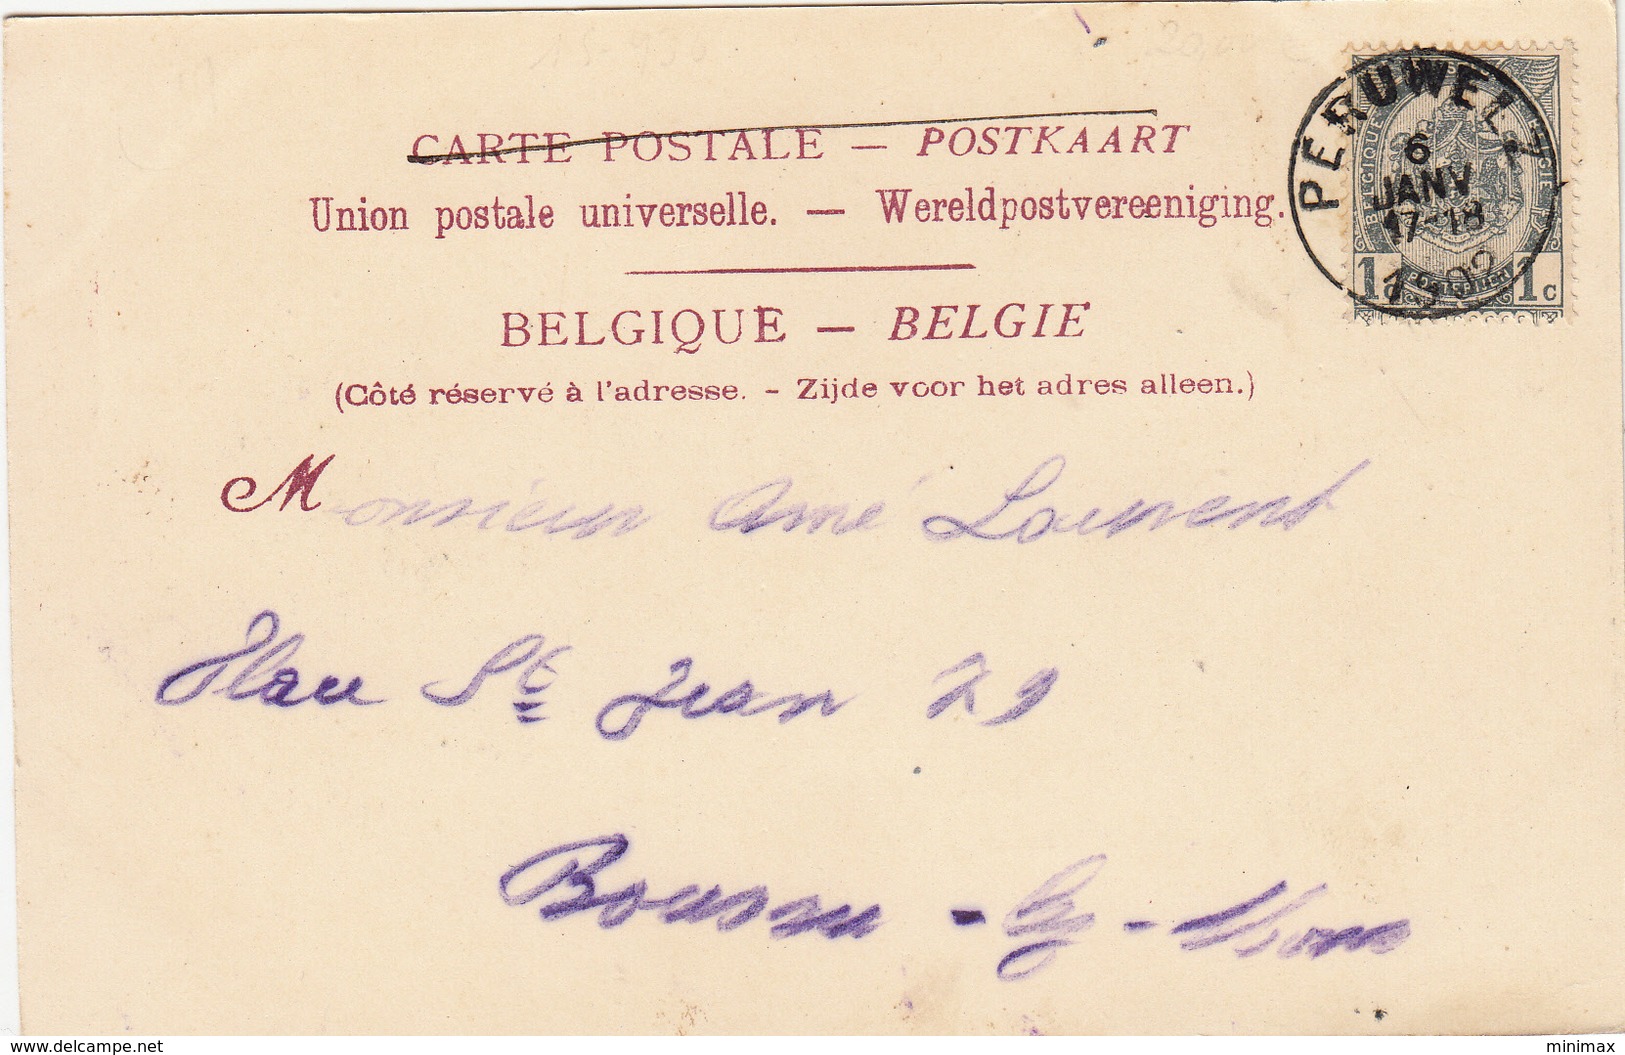 CARTE POSTALE — POSTKAART
Union postale universelle. — Wereldpostvereeniging.
BELGIQUE — BELGIE
(Côté réservé à l'adresse. - Zijde voor het adres alleen.)
PERUWELZ
6
JANV
17-18
1902
BELGIQUE
BELGIE
1c POSTERIJEN 1c
Monsieur Amé Laurent
St Jean 29
www.delcampe.net
minimax